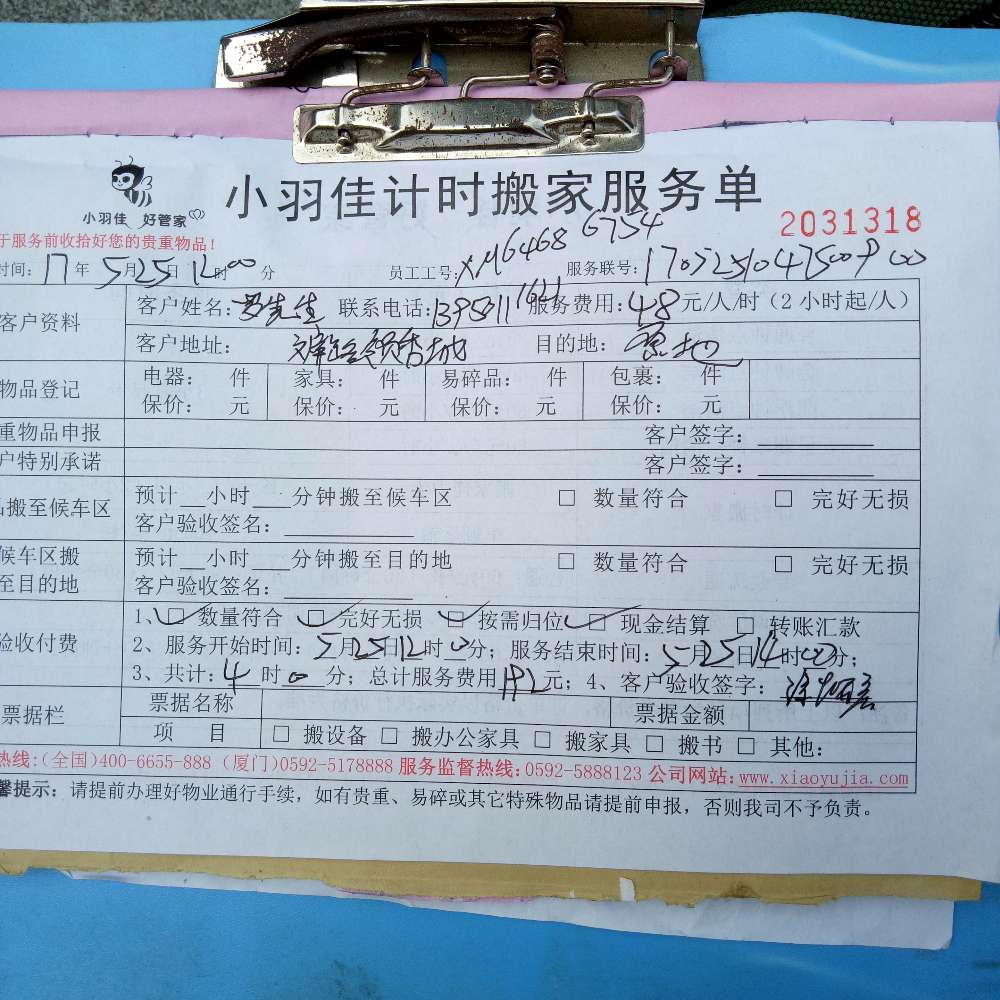 小羽佳 好管家
小羽佳计时搬家服务单
2031318
于服务前收拾好您的贵重物品！
时间：17年5月25日12时00分 员工工号：XM6468 6754 服务联号：
客户资料 客户姓名：先生 联系电话： 服务费用：48元/人/时（2小时起/人）
客户地址： 目的地：原地
物品登记 电器： 件 家具： 件 易碎品： 件 包裹： 件
保价： 元 保价： 元 保价： 元 保价： 元
重物品申报 客户签字：
户特别承诺 客户签字：
搬至候车区 预计__小时___分钟搬至候车区 □ 数量符合 □ 完好无损
客户验收签名：
候车区搬至目的地 预计__小时___分钟搬至目的地 □ 数量符合 □ 完好无损
客户验收签名：
验收付费 1、☑数量符合 ☑完好无损 ☑按需归位 ☑现金结算 □ 转账汇款
2、服务开始时间：5月25日12时0分；服务结束时间：5月25日14时00分；
3、共计：4时0分；总计服务费用192元；4、客户验收签字：
票据栏 票据名称 票据金额
项 目 □ 搬设备 □ 搬办公家具 □ 搬家具 □ 搬书 □ 其他：
热线：（全国）400-6655-888（厦门）0592-5178888 服务监督热线：0592-5888123 公司网站：www.xiaoyujia.com
馨提示：请提前办理好物业通行手续，如有贵重、易碎或其它特殊物品请提前申报，否则我司不予负责。